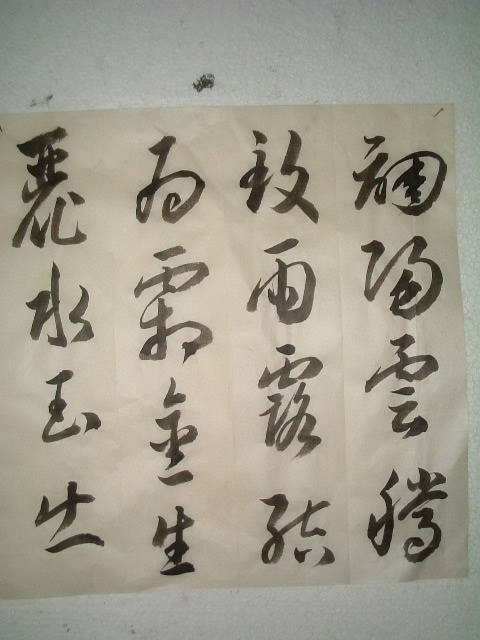 調陽雲騰
致雨露結
為霜金生
麗水玉出